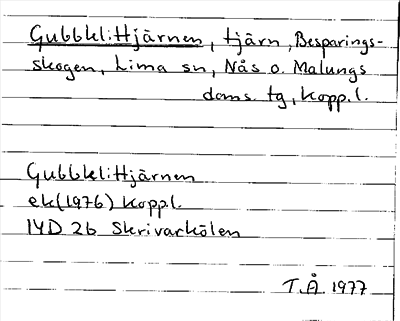 Gubbklittjärnen, tjärn, Besparings-
skogen, Lima sn, Nås o. Malungs
doms. tg, Kopp.l.
Gubbklittjärnen
ek(1976) Kopp.l.
14D 2b Skrivarkölen
T.Å. 1977